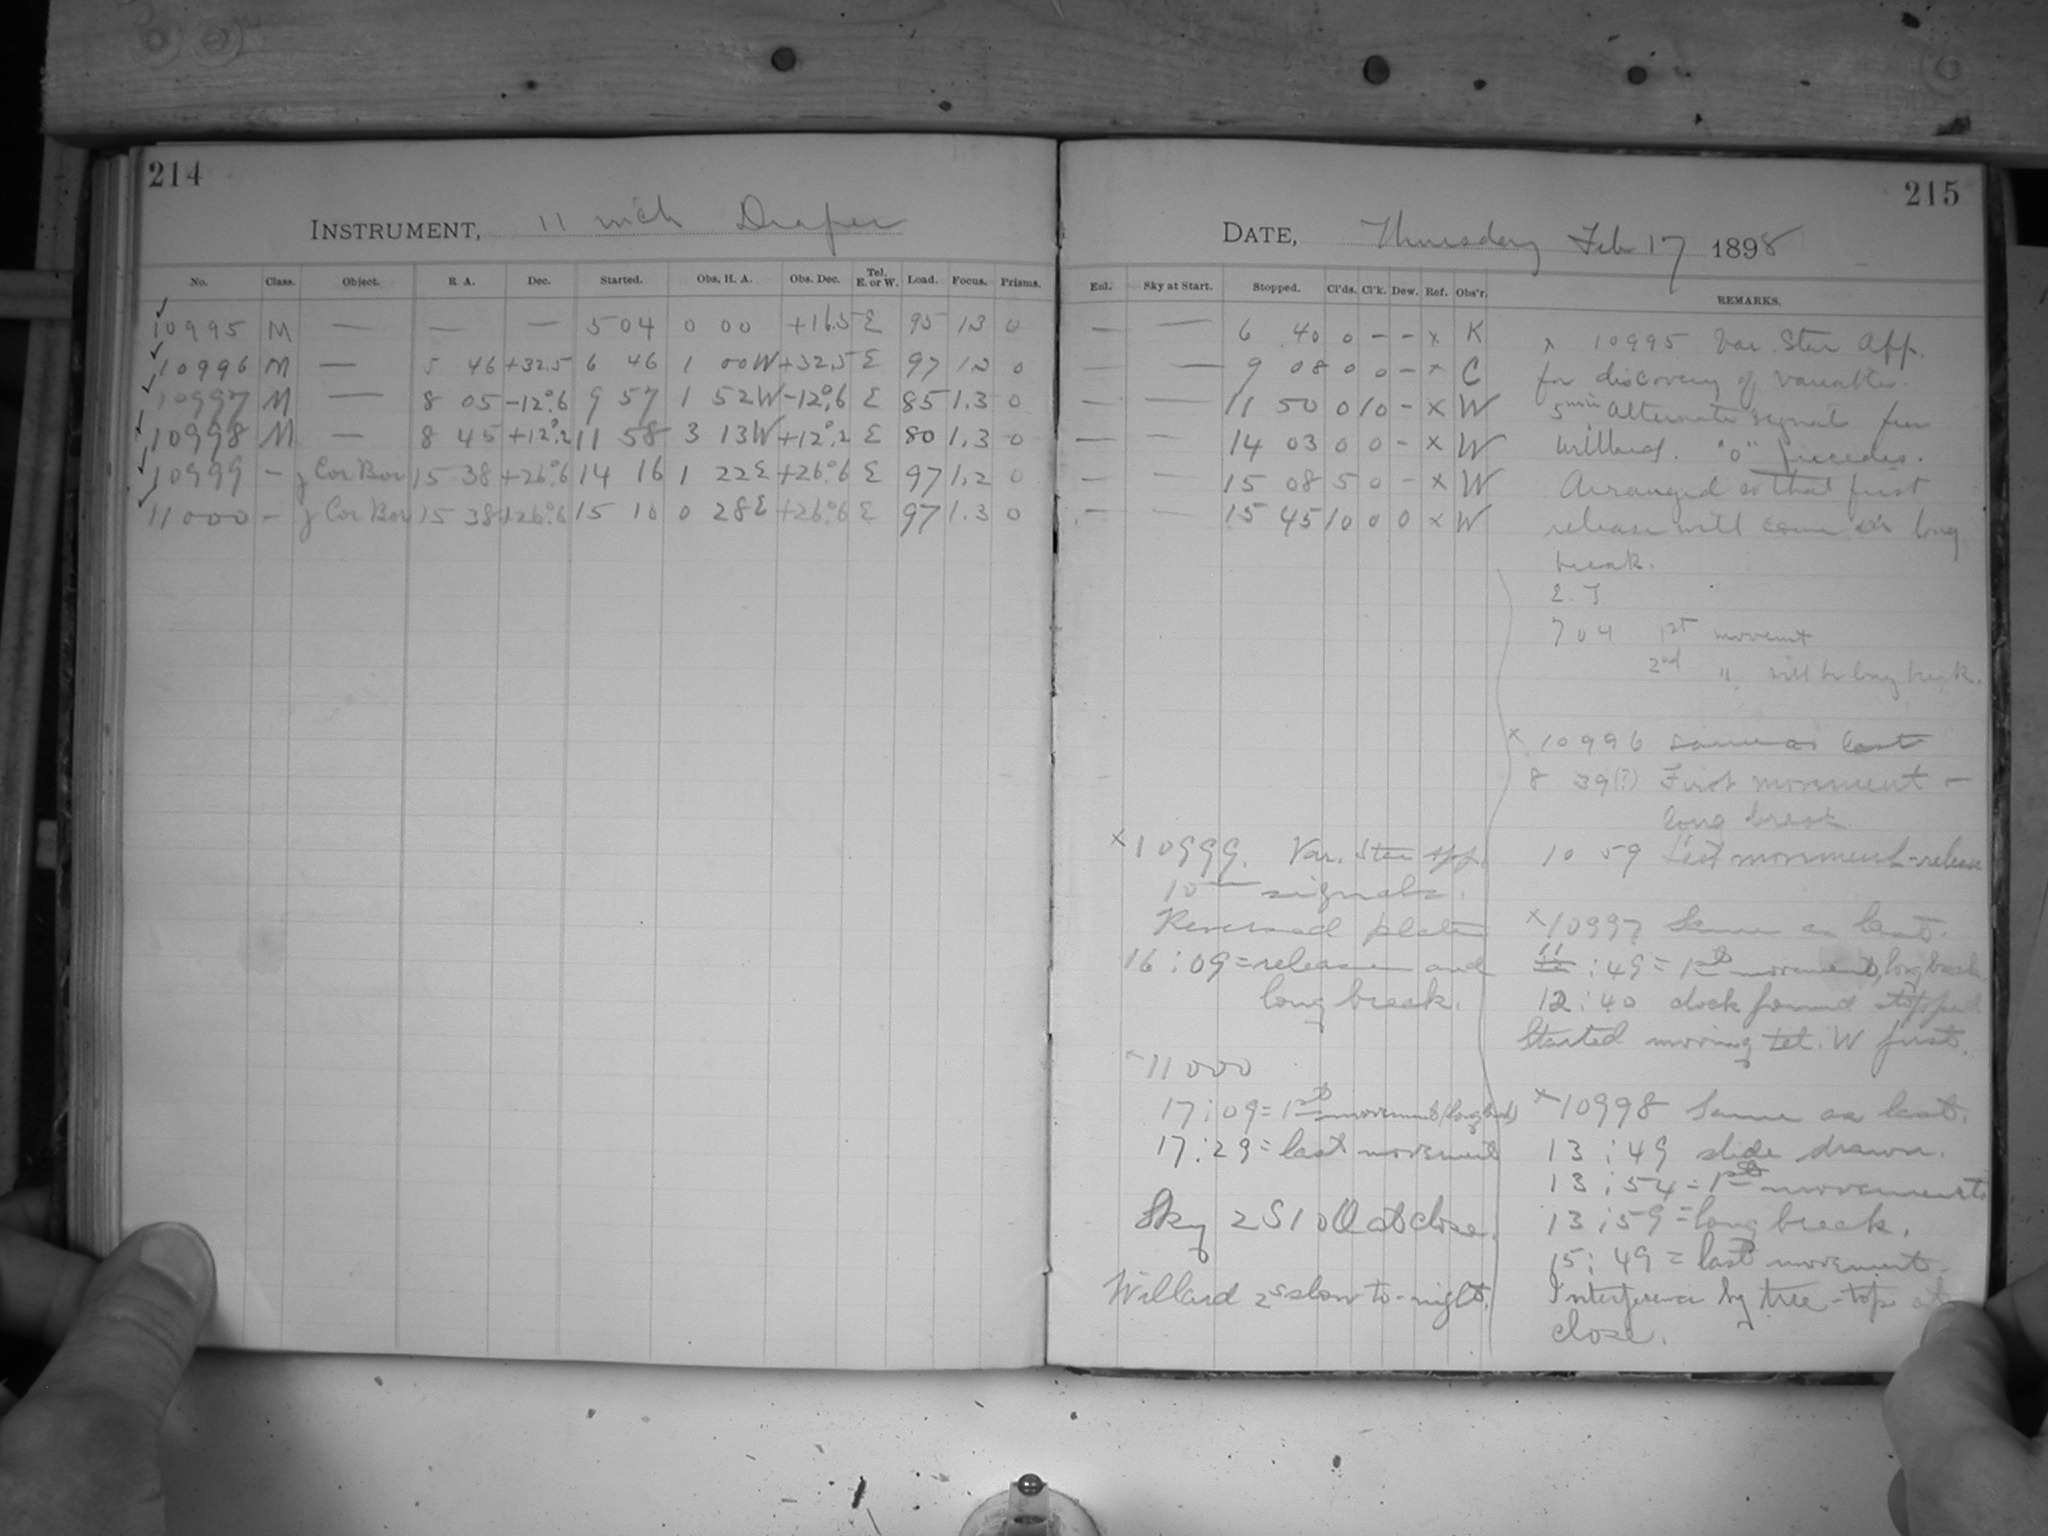 214
INSTRUMENT, 11 inch Draper
No. Class. Object. R. A. Dec. Started. Obs. H. A. Obs. Dec. Tel. E. or W. Load. Focus. Prisms.
10995 M — — — 5 04 0 00 +16.5 E 95 13 0
10996 M — 5 46 +32.5 6 46 1 00W +32.5 E 97 12 0
10997 M — 8 05 -12°.6 9 57 1 52W -12°.6 E 85 1.3 0
10998 M — 8 45 +12°.2 11 58 3 13W +12°.2 E 80 1.3 0
10999 — Cor Bor 15 38 +26°.6 14 16 1 22E +26°.6 E 97 1.2 0
11000 — Cor Bor 15 38 +26°.6 15 10 0 28E +26°.6 E 97 1.3 0
215
DATE, Thursday Feb 17 1898
Enl. Sky at Start. Stopped. Cl'ds. Cl'k. Dew. Ref. Obs'r. REMARKS.
— — 6 40 0 - - x K
— — 9 08 0 0 - x C
— — 11 50 0 10 - x W
— — 14 03 0 0 - x W
— — 15 08 5 0 - x W
— — 15 45 10 0 0 x W
x 10995 Var. Star App.
for discovery of variables.
5 min Alternate signal from
Willard. "0" precedes.
Arranged so that first
release will come on long
break.
704 1st movemt
2nd " will be long break.
x 10996 same as last
8 39(?) First movement -
long break
10 59 Last movement - release
x 10997 Same as last.
11 : 49 = 1st movement, long break
12 : 40 clock found stopped
Started moving tel. W first.
x 10998 Same as last.
13 : 49 slide drawn.
13 : 54 = 1st movement
13 : 59 = long break.
15 : 49 = last movement.
Interference by tree-top at
close.
x 10999. Var. Star App.
10 m signals.
Reversed plate
16 : 09 = release and
long break.
x 11000
17 : 09 = 1st movement (long break)
17 : 29 = last movement
Sky 2 S 10 at close.
Willard 2s slow to-night.